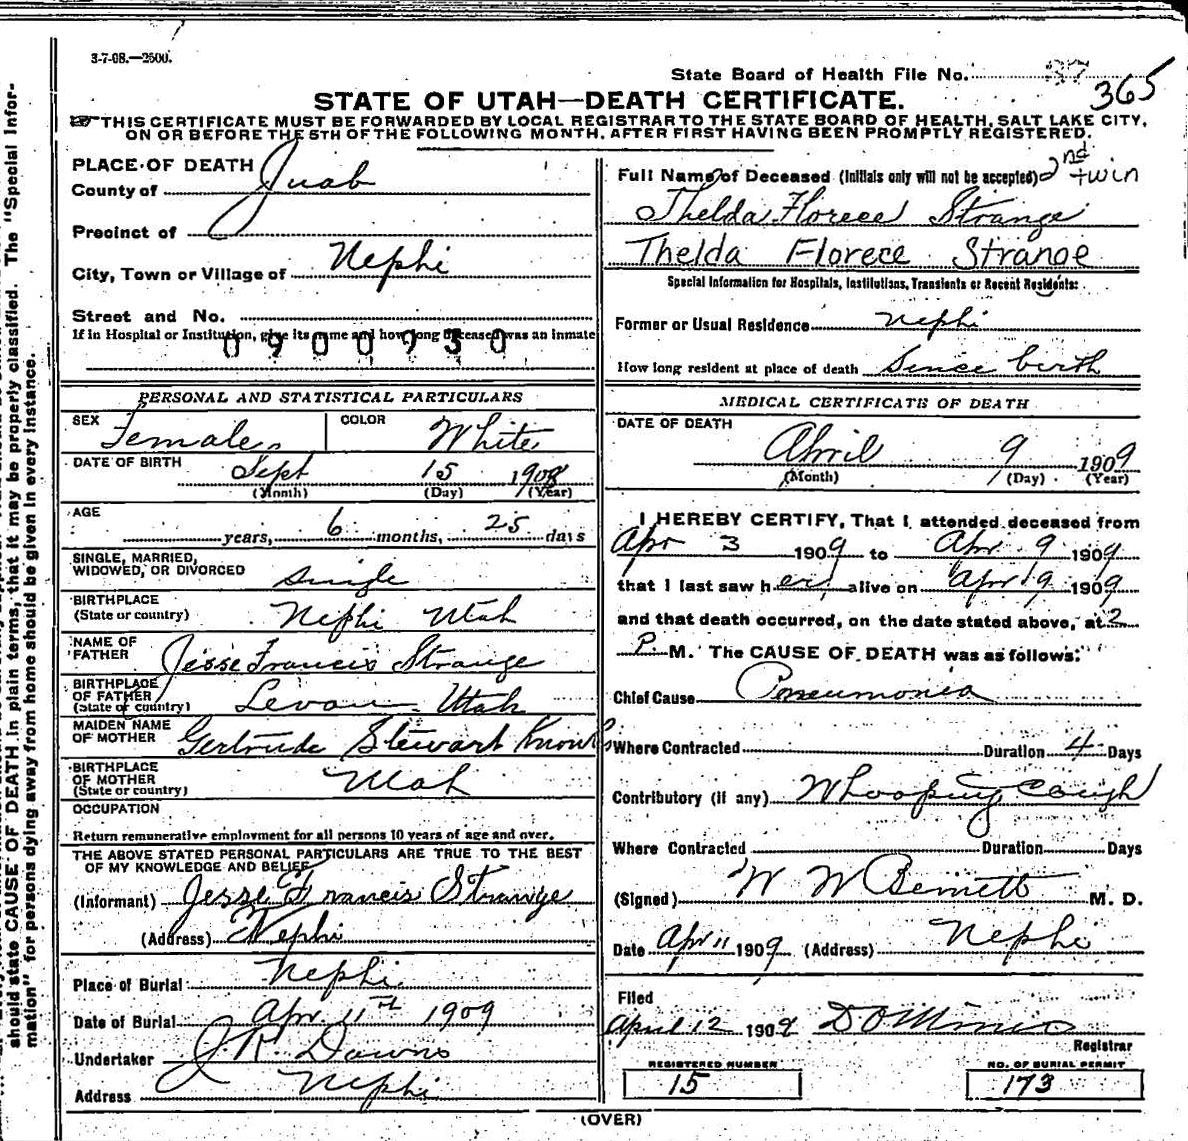 3-7-08.—2500.
State Board of Health File No. 37
365
STATE OF UTAH—DEATH CERTIFICATE.
THIS CERTIFICATE MUST BE FORWARDED BY LOCAL REGISTRAR TO THE STATE BOARD OF HEALTH, SALT LAKE CITY,
ON OR BEFORE THE 5TH OF THE FOLLOWING MONTH, AFTER FIRST HAVING BEEN PROMPTLY REGISTERED.
PLACE OF DEATH
County of Juab
Precinct of
City, Town or Village of Nephi
Street and No.
If in Hospital or Institution, give its name and how long deceased was an inmate
PERSONAL AND STATISTICAL PARTICULARS
SEX Female
COLOR White
DATE OF BIRTH Sept 15 1908
(Month) (Day) (Year)
AGE
years, 6 months, 25 days
SINGLE, MARRIED,
WIDOWED, OR DIVORCED single
BIRTHPLACE
(State or country) Nephi Utah
NAME OF
FATHER Jesse Francis Strange
BIRTHPLACE
OF FATHER
(State or country) Levan Utah
MAIDEN NAME
OF MOTHER Gertrude Stewart
BIRTHPLACE
OF MOTHER
(State or country) Utah
OCCUPATION
Return remunerative employment for all persons 10 years of age and over.
THE ABOVE STATED PERSONAL PARTICULARS ARE TRUE TO THE BEST
OF MY KNOWLEDGE AND BELIEF
(Informant) Jesse Francis Strange
(Address) Nephi
Place of Burial Nephi
Date of Burial Apr. 11th 1909
Undertaker
Address Nephi
Full Name of Deceased (Initials only will not be accepted) 2nd twin
Thelda Florece Strange
Thelda Florece Strange
Special Information for Hospitals, Institutions, Transients or Recent Residents:
Former or Usual Residence Nephi
How long resident at place of death Since birth
MEDICAL CERTIFICATE OF DEATH
DATE OF DEATH
April 9 1909
(Month) (Day) (Year)
I HEREBY CERTIFY, That I attended deceased from
Apr 3 1909 to Apr. 9 1909
that I last saw her alive on Apr 9 1909
and that death occurred, on the date stated above, at 2
P. M. The CAUSE OF DEATH was as follows:
Chief Cause Pneumonia
Where Contracted Duration 4 Days
Contributory (if any) Whooping Cough
Where Contracted Duration Days
(Signed) W W Bennett M. D.
Date Apr 11 1909 (Address) Nephi
Filed
April 12 1909
Registrar
REGISTERED NUMBER
15
NO. OF BURIAL PERMIT
173
(OVER)
should state CAUSE OF DEATH in plain terms, that it may be properly classified. The "Special Infor-
mation" for persons dying away from home should be given in every instance.